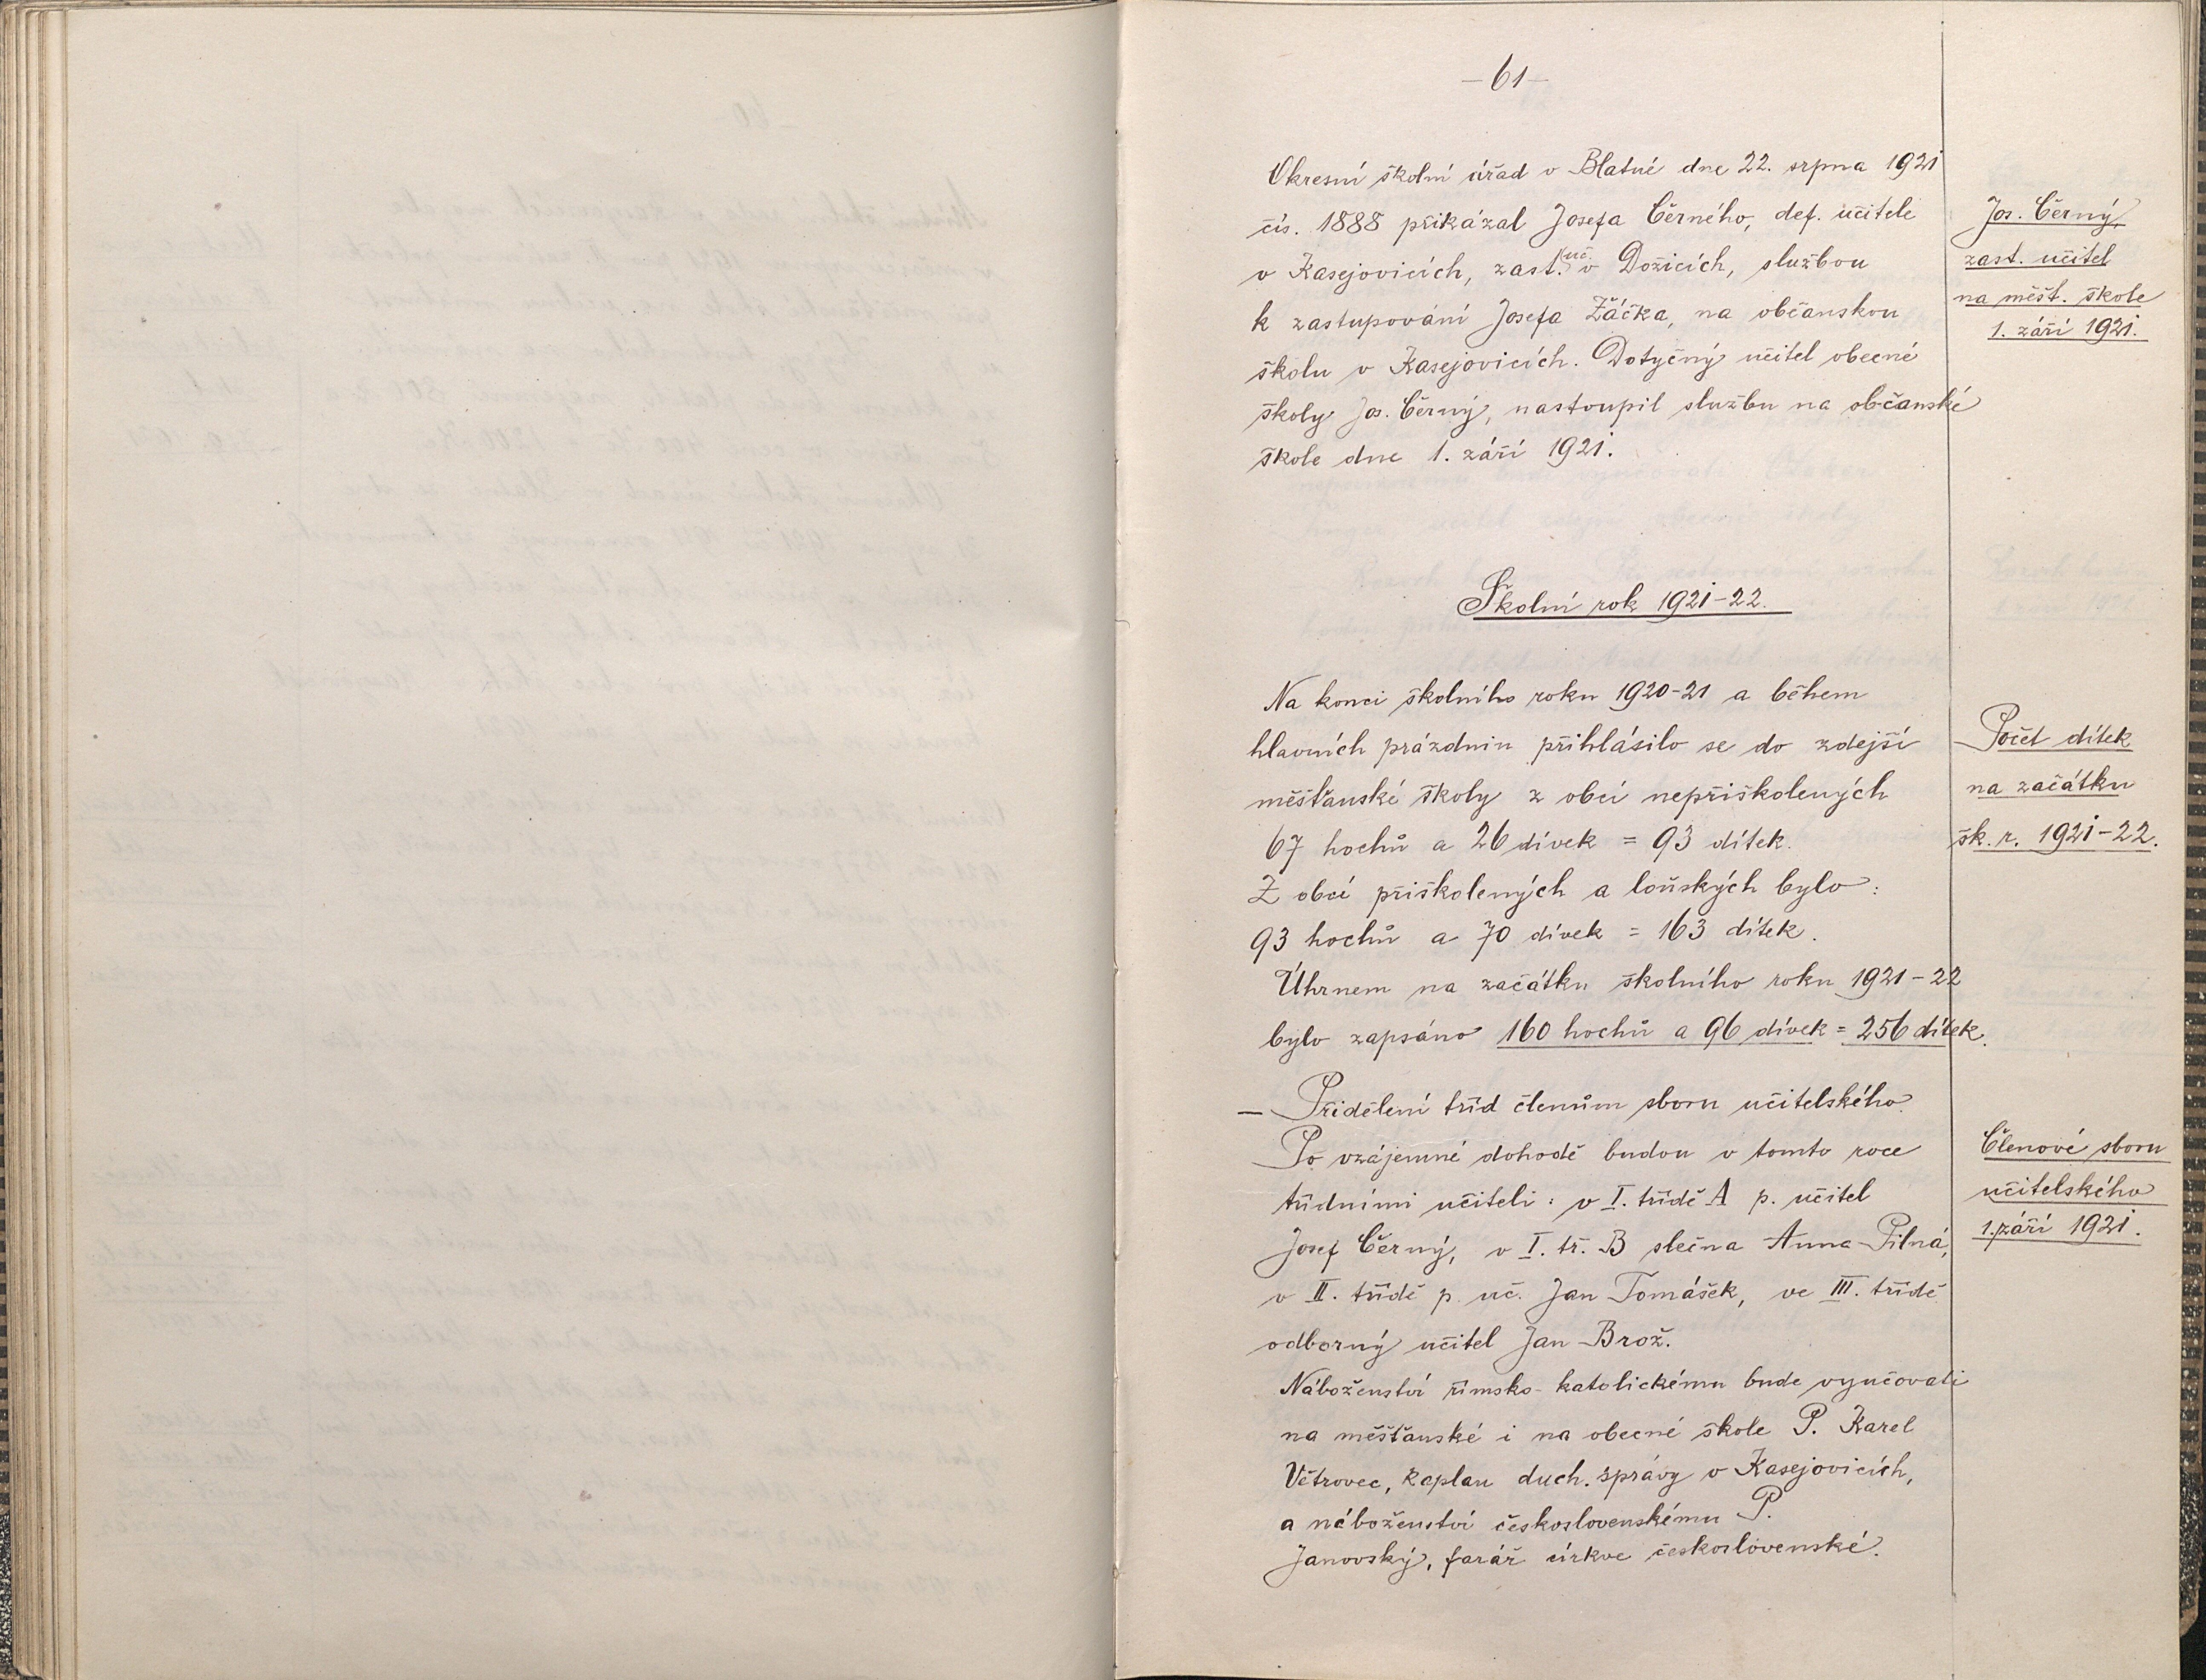 – 61 –
Okresní školní úřad v Blatné dne 22. srpna 1921
čís. 1888 přikázal Josefa Černého, def. učitele
v Kasejovicích, zast. uč. v Dožicích, službou
k zastupování Josefa Žáčka, na občanskou
školu v Kasejovicích. Dotyčný učitel obecné
školy Jos. Černý, nastoupil službu na občanské
škole dne 1. září 1921.
Jos. Černý,
zast. učitel
na měšt. škole
1. září 1921.
Školní rok 1921–22.
Na konci školního roku 1920–21 a během
hlavních prázdnin přihlásilo se do zdejší
měšťanské školy z obcí nepřiškolených
67 hochů a 26 dívek = 93 dítek.
Z obcí přiškolených a loňských bylo:
93 hochů a 70 dívek = 163 dítek.
Úhrnem na začátku školního roku 1921–22
bylo zapsáno 160 hochů a 96 dívek = 256 dítek.
Počet dítek
na začátku
šk. r. 1921–22.
– Přidělení tříd členům sboru učitelského.
Po vzájemné dohodě budou v tomto roce
třídními učiteli: v I. třídě A p. učitel
Josef Černý, v I. tř. B slečna Anna Pilná,
v II. třídě p. uč. Jan Tomášek, ve III. třídě
odborný učitel Jan Brož.
Náboženství římsko-katolickému bude vyučovati
na měšťanské i na obecné škole P. Karel
Větrovec, kaplan duch. správy v Kasejovicích,
a náboženství československému P.
Janovský, farář církve československé.
Členové sboru
učitelského
1. září 1921.